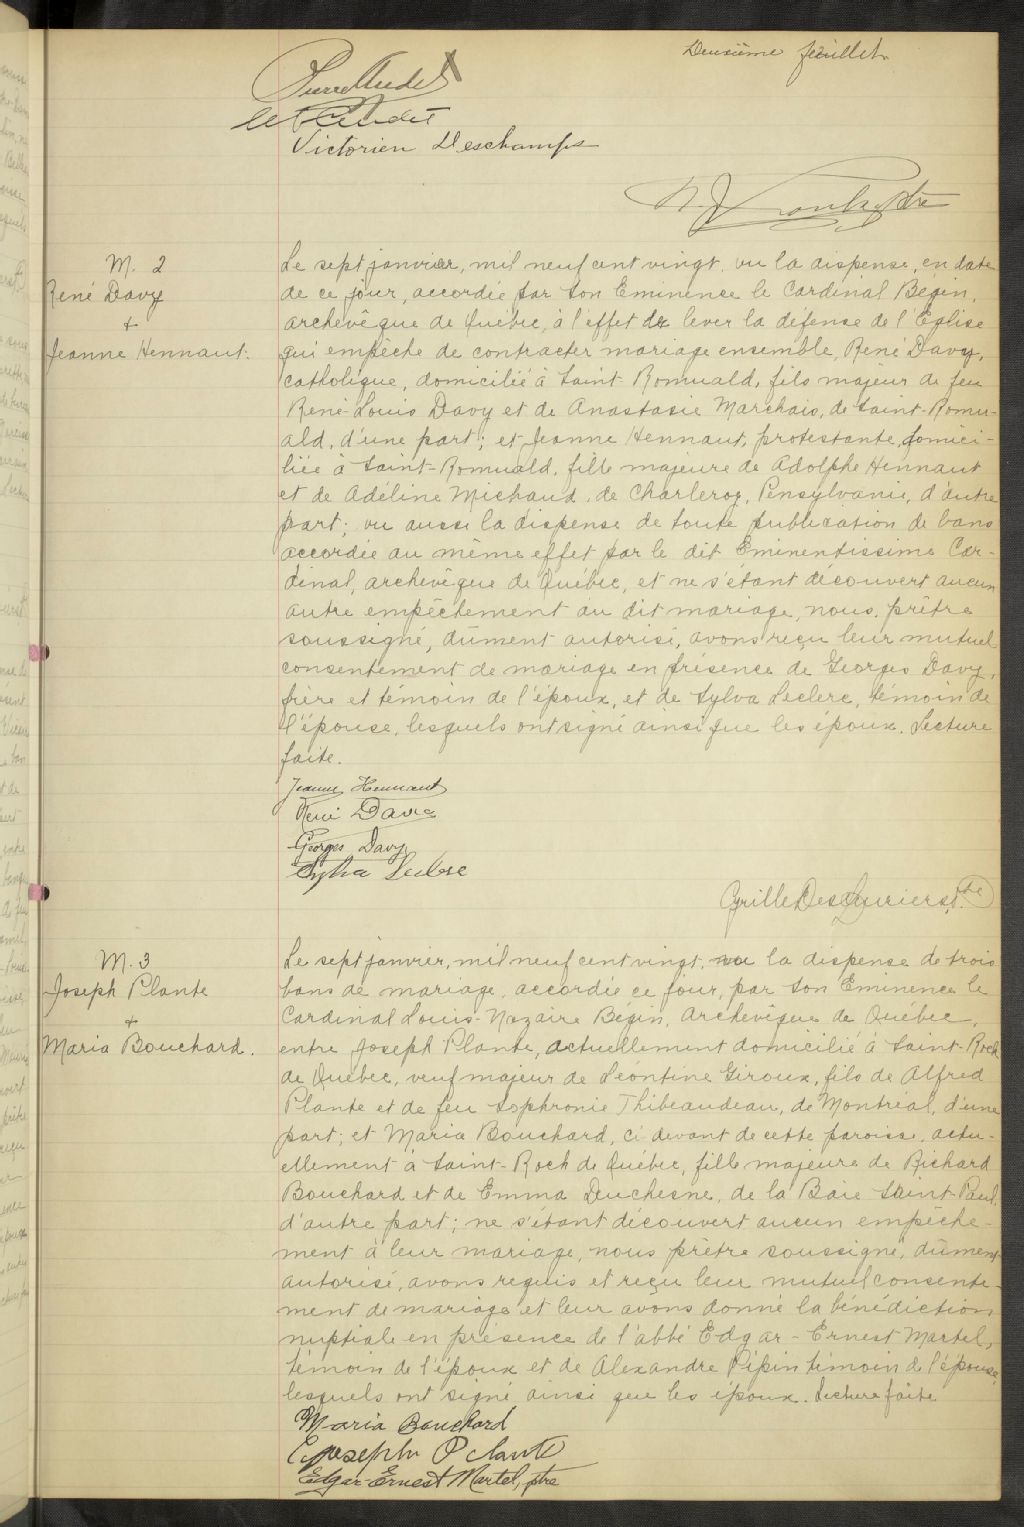 Deuxième feuillet.
Pierre Audet
Audet
Victorien Deschamps
M. 2
René Davy
+
Jeanne Hennaut.
Le sept janvier, mil neuf cent vingt, vu la dispense, en date
de ce jour, accordée par Son Eminence le Cardinal Bégin,
archevêque de Québec, à l'effet de lever la défense de l'Eglise
qui empêche de contracter mariage ensemble, René Davy,
catholique, domicilié à Saint-Romuald, fils majeur de feu
René-Louis Davy et de Anastasie Marchais, de Saint-Romu-
ald, d'une part; et Jeanne Hennaut, protestante, domici-
liée à Saint-Romuald, fille majeure de Adolphe Hennaut
et de Adéline Michaud, de Charleroy, Pensylvanie, d'autre
part; vu aussi la dispense de toute publication de bans
accordée au même effet par le dit Eminentissime Car-
dinal, archevêque de Québec, et ne s'étant découvert aucun
autre empêchement au dit mariage, nous, prêtre
soussigné, dûment autorisé, avons reçu leur mutuel
consentement de mariage en présence de Georges Davy,
frère et témoin de l'époux, et de Sylva Leclerc, témoin de
l'épouse, lesquels ont signé ainsi que les époux. Lecture
faite.
Jeanne Hennaut
René Davy
Georges Davy
Sylva Leclerc
Cyrille Deslauriers, ptre
M. 3
Joseph Plante
+
Maria Bouchard.
Le sept janvier, mil neuf cent vingt, vu la dispense de trois
bans de mariage, accordée ce jour, par Son Eminence le
Cardinal Louis-Nazaire Bégin, Archevêque de Québec,
entre Joseph Plante, actuellement domicilié à Saint-Roch
de Québec, veuf majeur de Léontine Giroux, fils de Alfred
Plante et de feu Sophronie Thibeaudeau, de Montréal, d'une
part; et Maria Bouchard, ci devant de cette paroisse, actu-
ellement à Saint-Roch de Québec, fille majeure de Richard
Bouchard et de Emma Duchesne, de la Baie Saint-Paul,
d'autre part; ne s'étant découvert aucun empêche-
ment à leur mariage, nous prêtre soussigné, dûment
autorisé, avons requis et reçu leur mutuel consente-
ment de mariage et leur avons donné la bénédiction
nuptiale en présence de l'abbé Edgar-Ernest Martel,
témoin de l'époux et de Alexandre Pépin témoin de l'épouse,
lesquels ont signé ainsi que les époux. Lecture faite
Maria Bouchard
Joseph Plante
Edgar-Ernest Martel, ptre